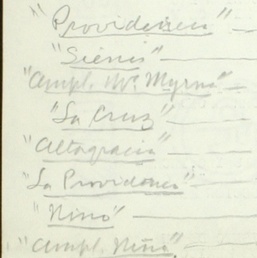 "Providencia" —
"Siénis" —
"Ampl. Mᵃ Myrna" —
"La Cruz" —
"Altagracia" —
"La Providencia" —
"Nino" —
"Ampl. Niño" —